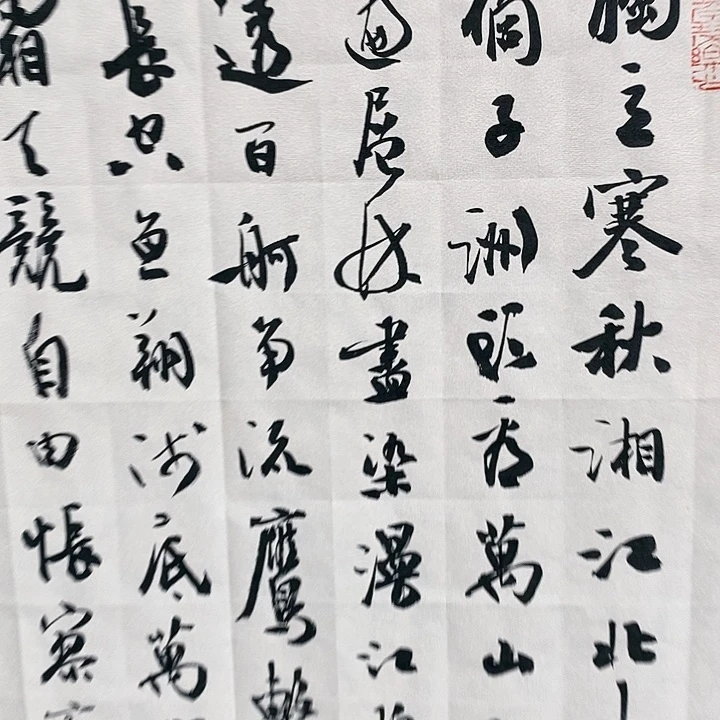 獨立寒秋湘江北
橘子洲頭看萬山
遍層林盡染漫江
透百舸爭流鷹擊
長空魚翔淺底萬
霜天競自由悵寥